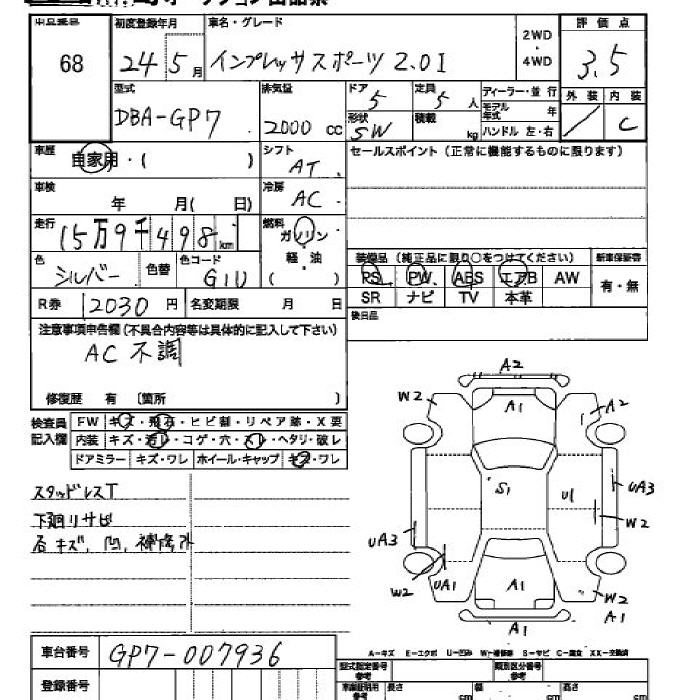 出品番号 68
初度登録年月 24 5月
車名・グレード インプレッサスポーツ 2.0I
2WD・4WD
評価点 3.5
外装 / 内装 C
型式 DBA-GP7
排気量 2000 cc
ドア 5
定員 5人
ディーラー・並行
モデル年式 年
形状 SW
積載 kg
ハンドル 左・右
車歴 自家用・( )
シフト AT
セールスポイント (正常に機能するものに限ります)
車検 年 月( 日)
冷房 AC
走行 15万9千498km
燃料 ガソリン 軽油 ( )
色 シルバー 色替
色コード G1U
装備品 (純正品に限り○をつけてください)
新車保証書 有・無
PS PW ABS エアB AW
SR ナビ TV 本革
R券 12030 円
名変期限 月 日
後日品
注意事項申告欄(不具合内容等は具体的に記入して下さい)
AC 不調
修復歴 有 〔箇所 〕
検査員記入欄
FW キズ・飛石・ヒビ割・リペア跡・X要
内装 キズ・汚レ・コゲ・穴・スレ・ヘタリ・破レ
ドアミラー キズ・ワレ ホイール・キャップ キズ・ワレ
スタッドレスT
下廻リサビ
石キズ、凹、補修外
A2
W2
A1
A2
S1
U1
UA3
W2
UA3
W2
UA1
A1
W2
A1
A-キズ E-エクボ U-凹み W-補修跡 S-サビ C-腐食 XX-交換済
車台番号 GP7-007936
登録番号
型式指定番号 参考
類別区分番号 参考
長さ cm
幅 cm
高さ cm